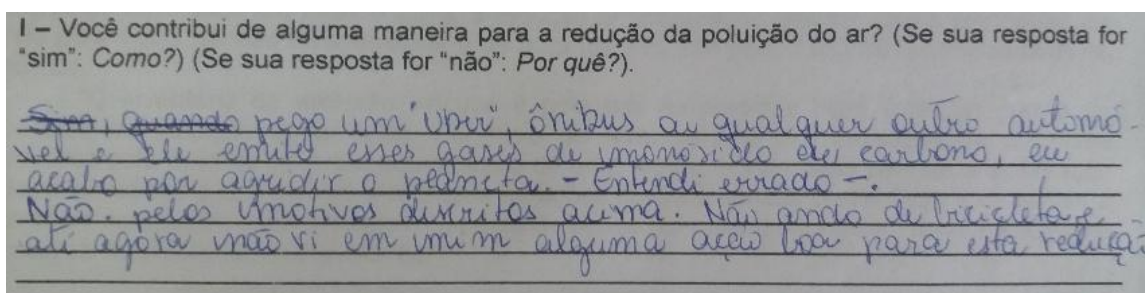 I – Você contribui de alguma maneira para a redução da poluição do ar? (Se sua resposta for
"sim": Como?) (Se sua resposta for "não": Por quê?).
Sim, quando pego um "Uber", ônibus ou qualquer outro automó-
vel e ele emite esses gases de monoxido de carbono, eu
acabo por agredir o planeta. - Entendi errado -.
Não. pelos motivos descritos acima. Não ando de bicicleta e
até agora não vi em mim alguma ação boa para esta reduçã